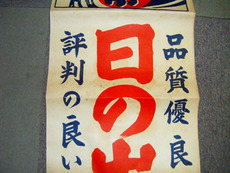 品質優良
日の出
評判の良い